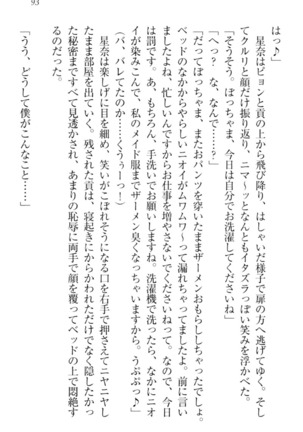 93
はっ♪」
　星奈はピョンと貢の上から飛び降り、はしゃいだ様子で扉の方へ逃げてゆく。そし
てクルリと顔だけ振り返り、ニマ～ッとなんともイタズラっぽい笑みを浮かべた。
「そうそう。ぼっちゃま、今日は自分でお洗濯してくださいね」
「へっ？　な、なんで……？」
「だってぼっちゃま、またおパンツを穿いたままザーメンおもらししちゃったでしょ。
ベッドのなかからやらしいニオイがムワムワ～って漏れちゃってましたよ。前に言い
ましたよね、忙しいんですからお仕事を増やさないでくださいねって。なので、今日
は罰です。あ、もちろん、手洗いでお願いしますね。洗濯機で洗ったら、なかにニオ
イが染みこんで、私のメイド服までザーメン臭くなっちゃいますから。うぷぷっ♪」
（バ、バレてたのか……くうぅーっ！）
　星奈は楽しげに目を細め、笑いがこぼれそうになる口を右手で押さえてニヤニヤし
たまま部屋を出ていく。残された貢は、寝起きにからかわれただけでなく隠したかっ
た秘密まですべて見透かされ、あまりの恥辱に両手で顔を覆ってベッドの上で悶絶す
るのだった。
「うう、どうして僕がこんなこと……」